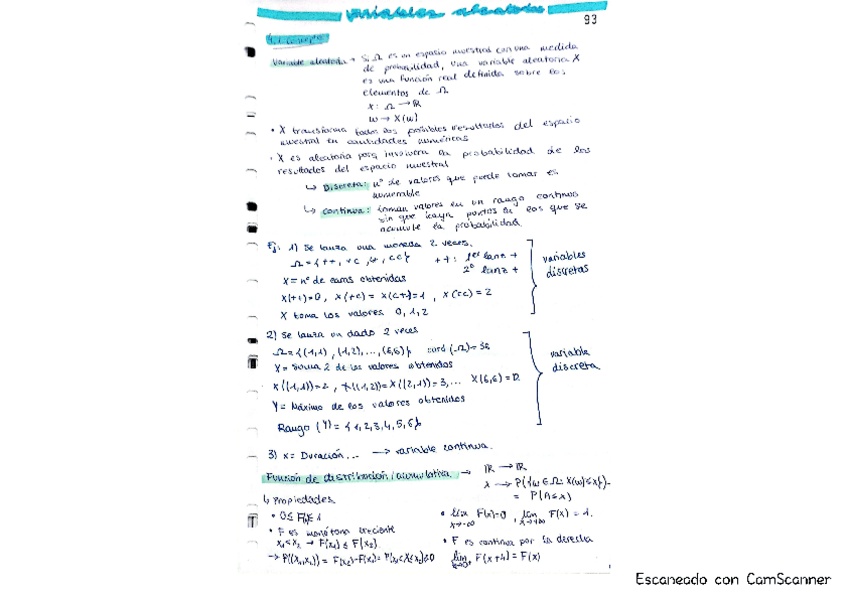 variables aleatorias
93
4.1 Concepto
Variable aleatoria → Si Ω es un espacio muestral con una medida
de probabilidad, una variable aleatoria X
es una función real definida sobre los
elementos de Ω
X: Ω → ℝ
ω → X(ω)
• X transforma todos los posibles resultados del espacio
muestral en cantidades numéricas
• X es aleatoria porq involucra la probabilidad de los
resultados del espacio muestral
↳ Discreta: nº de valores que puede tomar es
numerable
↳ Continua: toman valores en un rango continuo
sin que haya puntos en los que se
acumule la probabilidad
Ej: 1) Se lanza una moneda 2 veces.
Ω = {++, +c, c+, cc} ++: 1er lanz +
2º lanz +
X = nº de caras obtenidas
X(++)=0, X(+c) = X(c+)=1, X(cc) = 2
X toma los valores 0, 1, 2
variables
discretas
2) Se lanza un dado 2 veces
Ω = {(1,1), (1,2), ..., (6,6)} card(Ω)=36
X = Suma 2 de los valores obtenidos
X((1,1))=2, X((1,2))=X((2,1))=3,... X(6,6)=12
Y = Máximo de los valores obtenidos
Rango (Y) = {1,2,3,4,5,6}
variable
discreta
3) X = Duración... → variable continua.
Función de distribución / acumulativa → ℝ → ℝ
P({ω ∈ Ω: X(ω) ≤ x})
↳ Propiedades
• F es monótona creciente
x₁<x₂ → F(x₁) ≤ F(x₂)
• lim x→-∞ F(x)=0, lim x→+∞ F(x) = 1.
• F es continua por la derecha
F(x+h) = F(x)
Escaneado con CamScanner